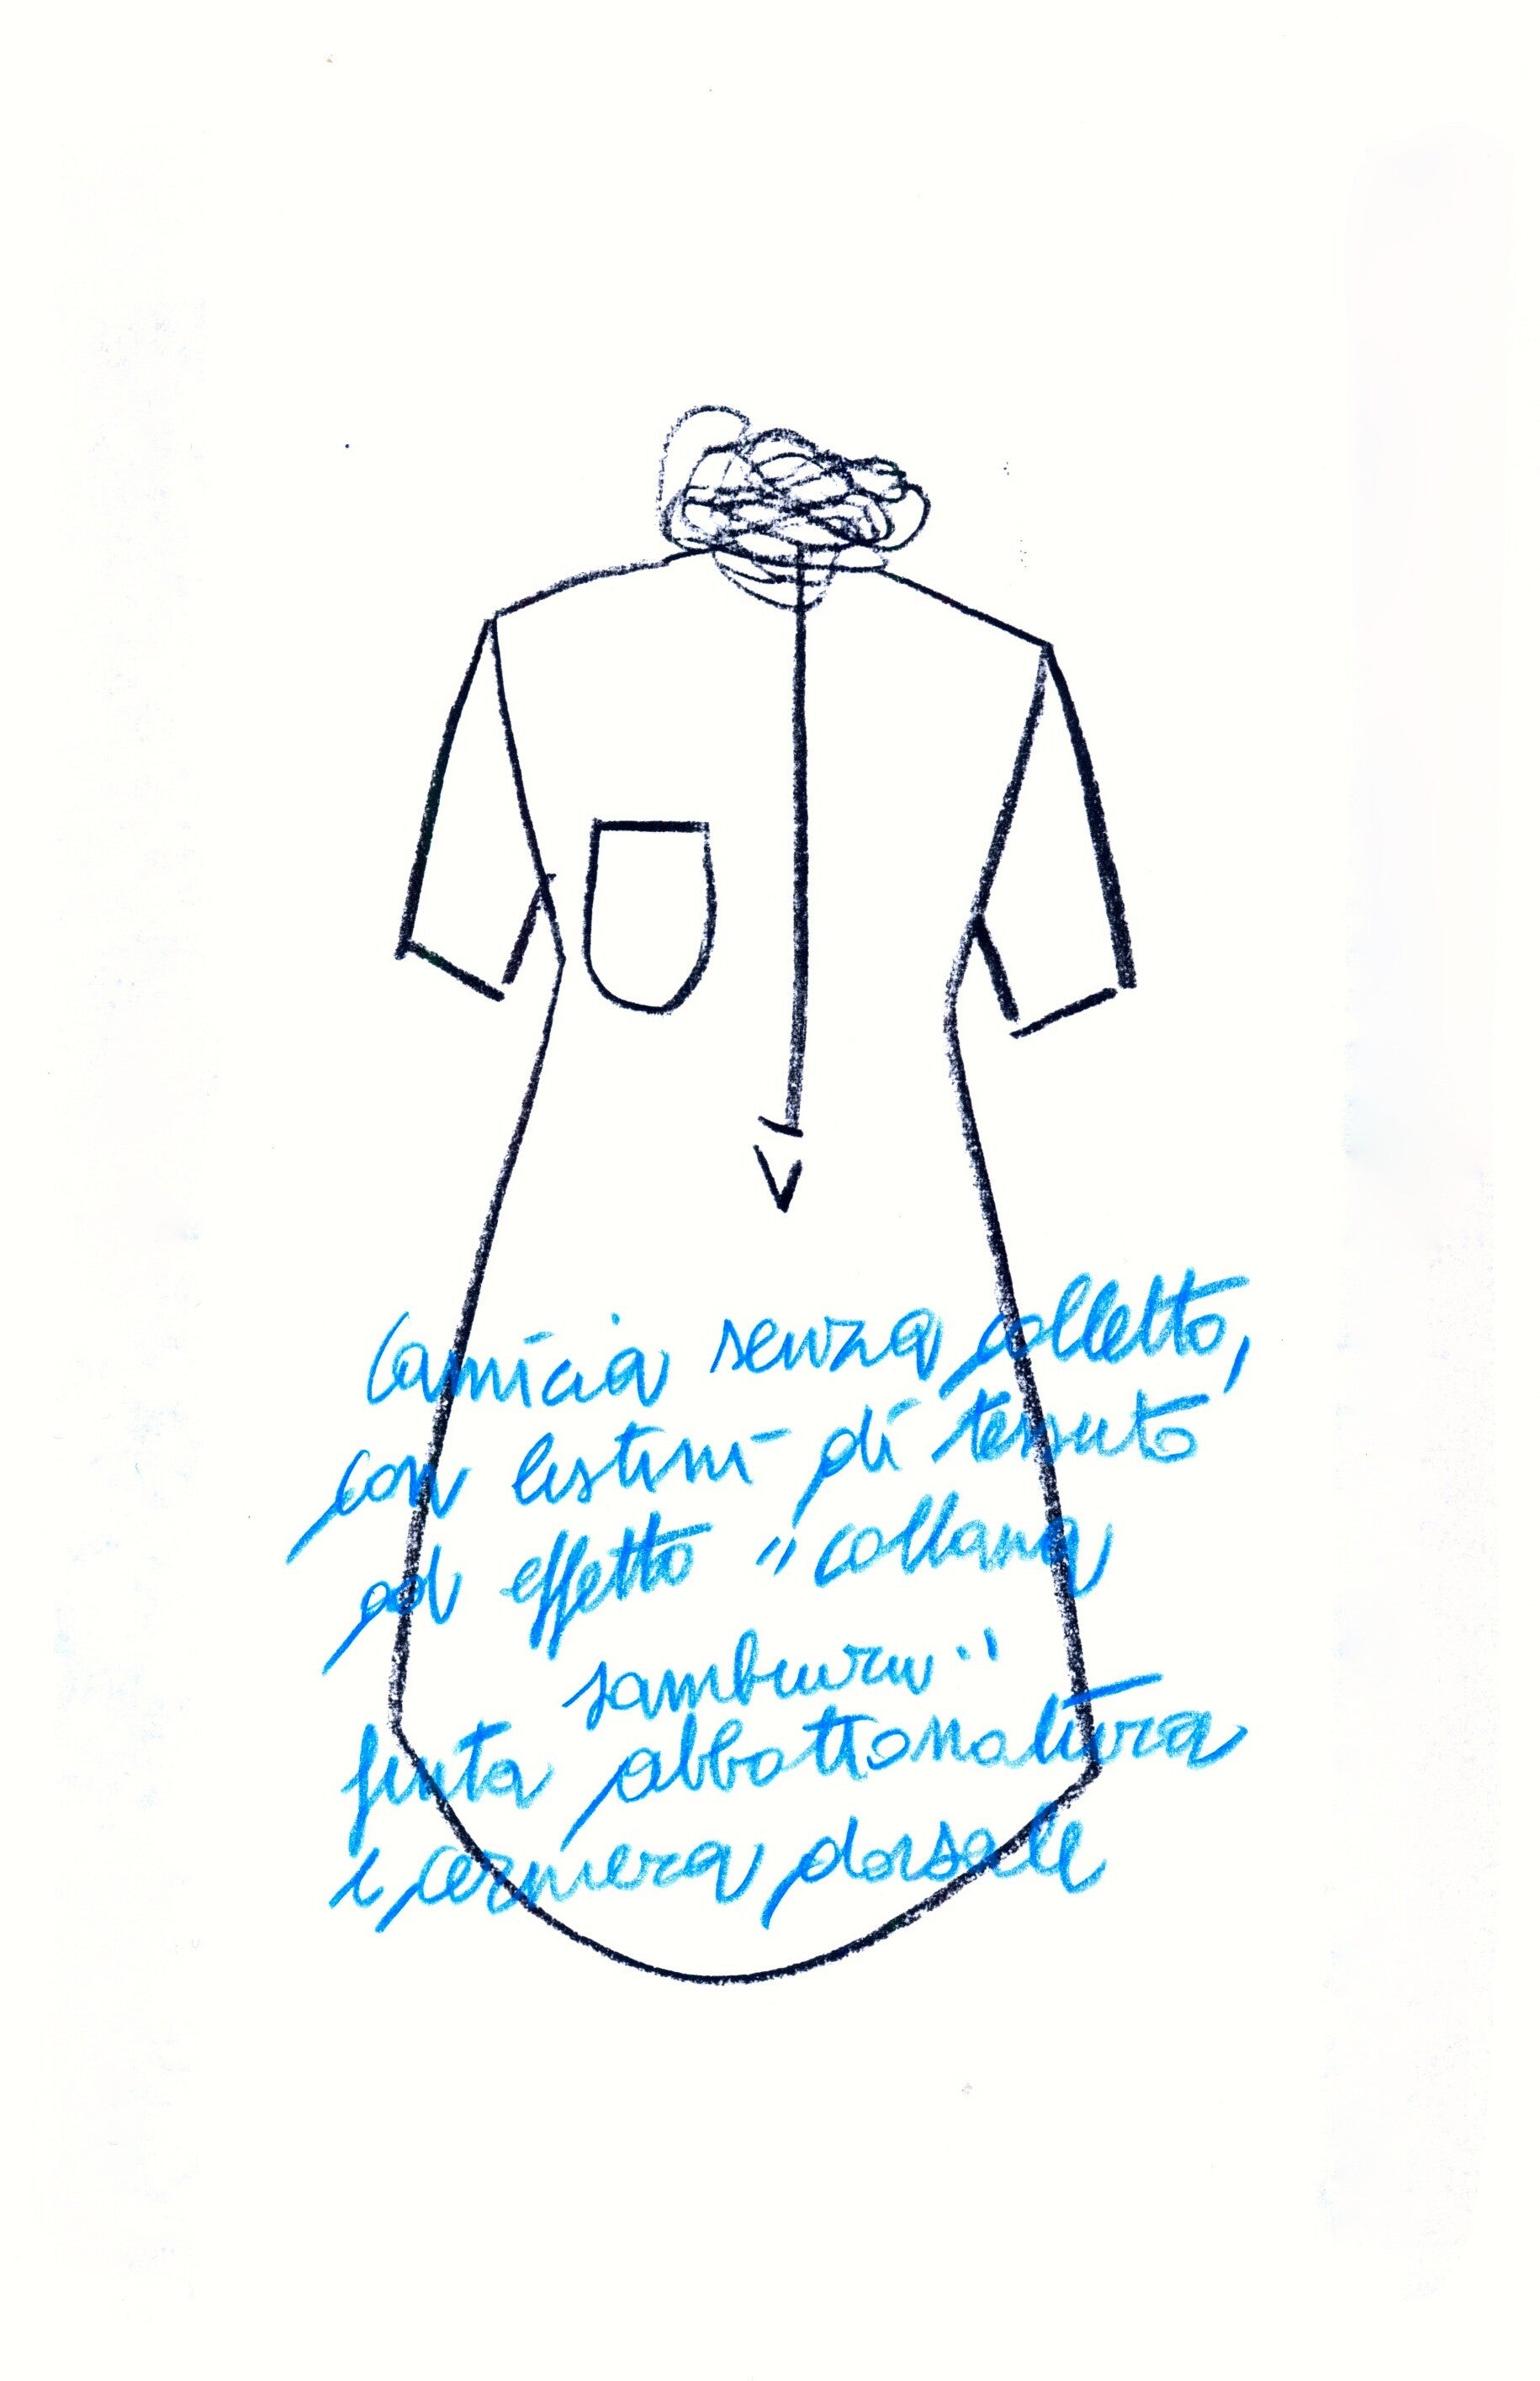 Camicia senza colletto,
con listini di tessuto
ad effetto "collana
samburu"
finta abbottonatura
e cerniera dorsale